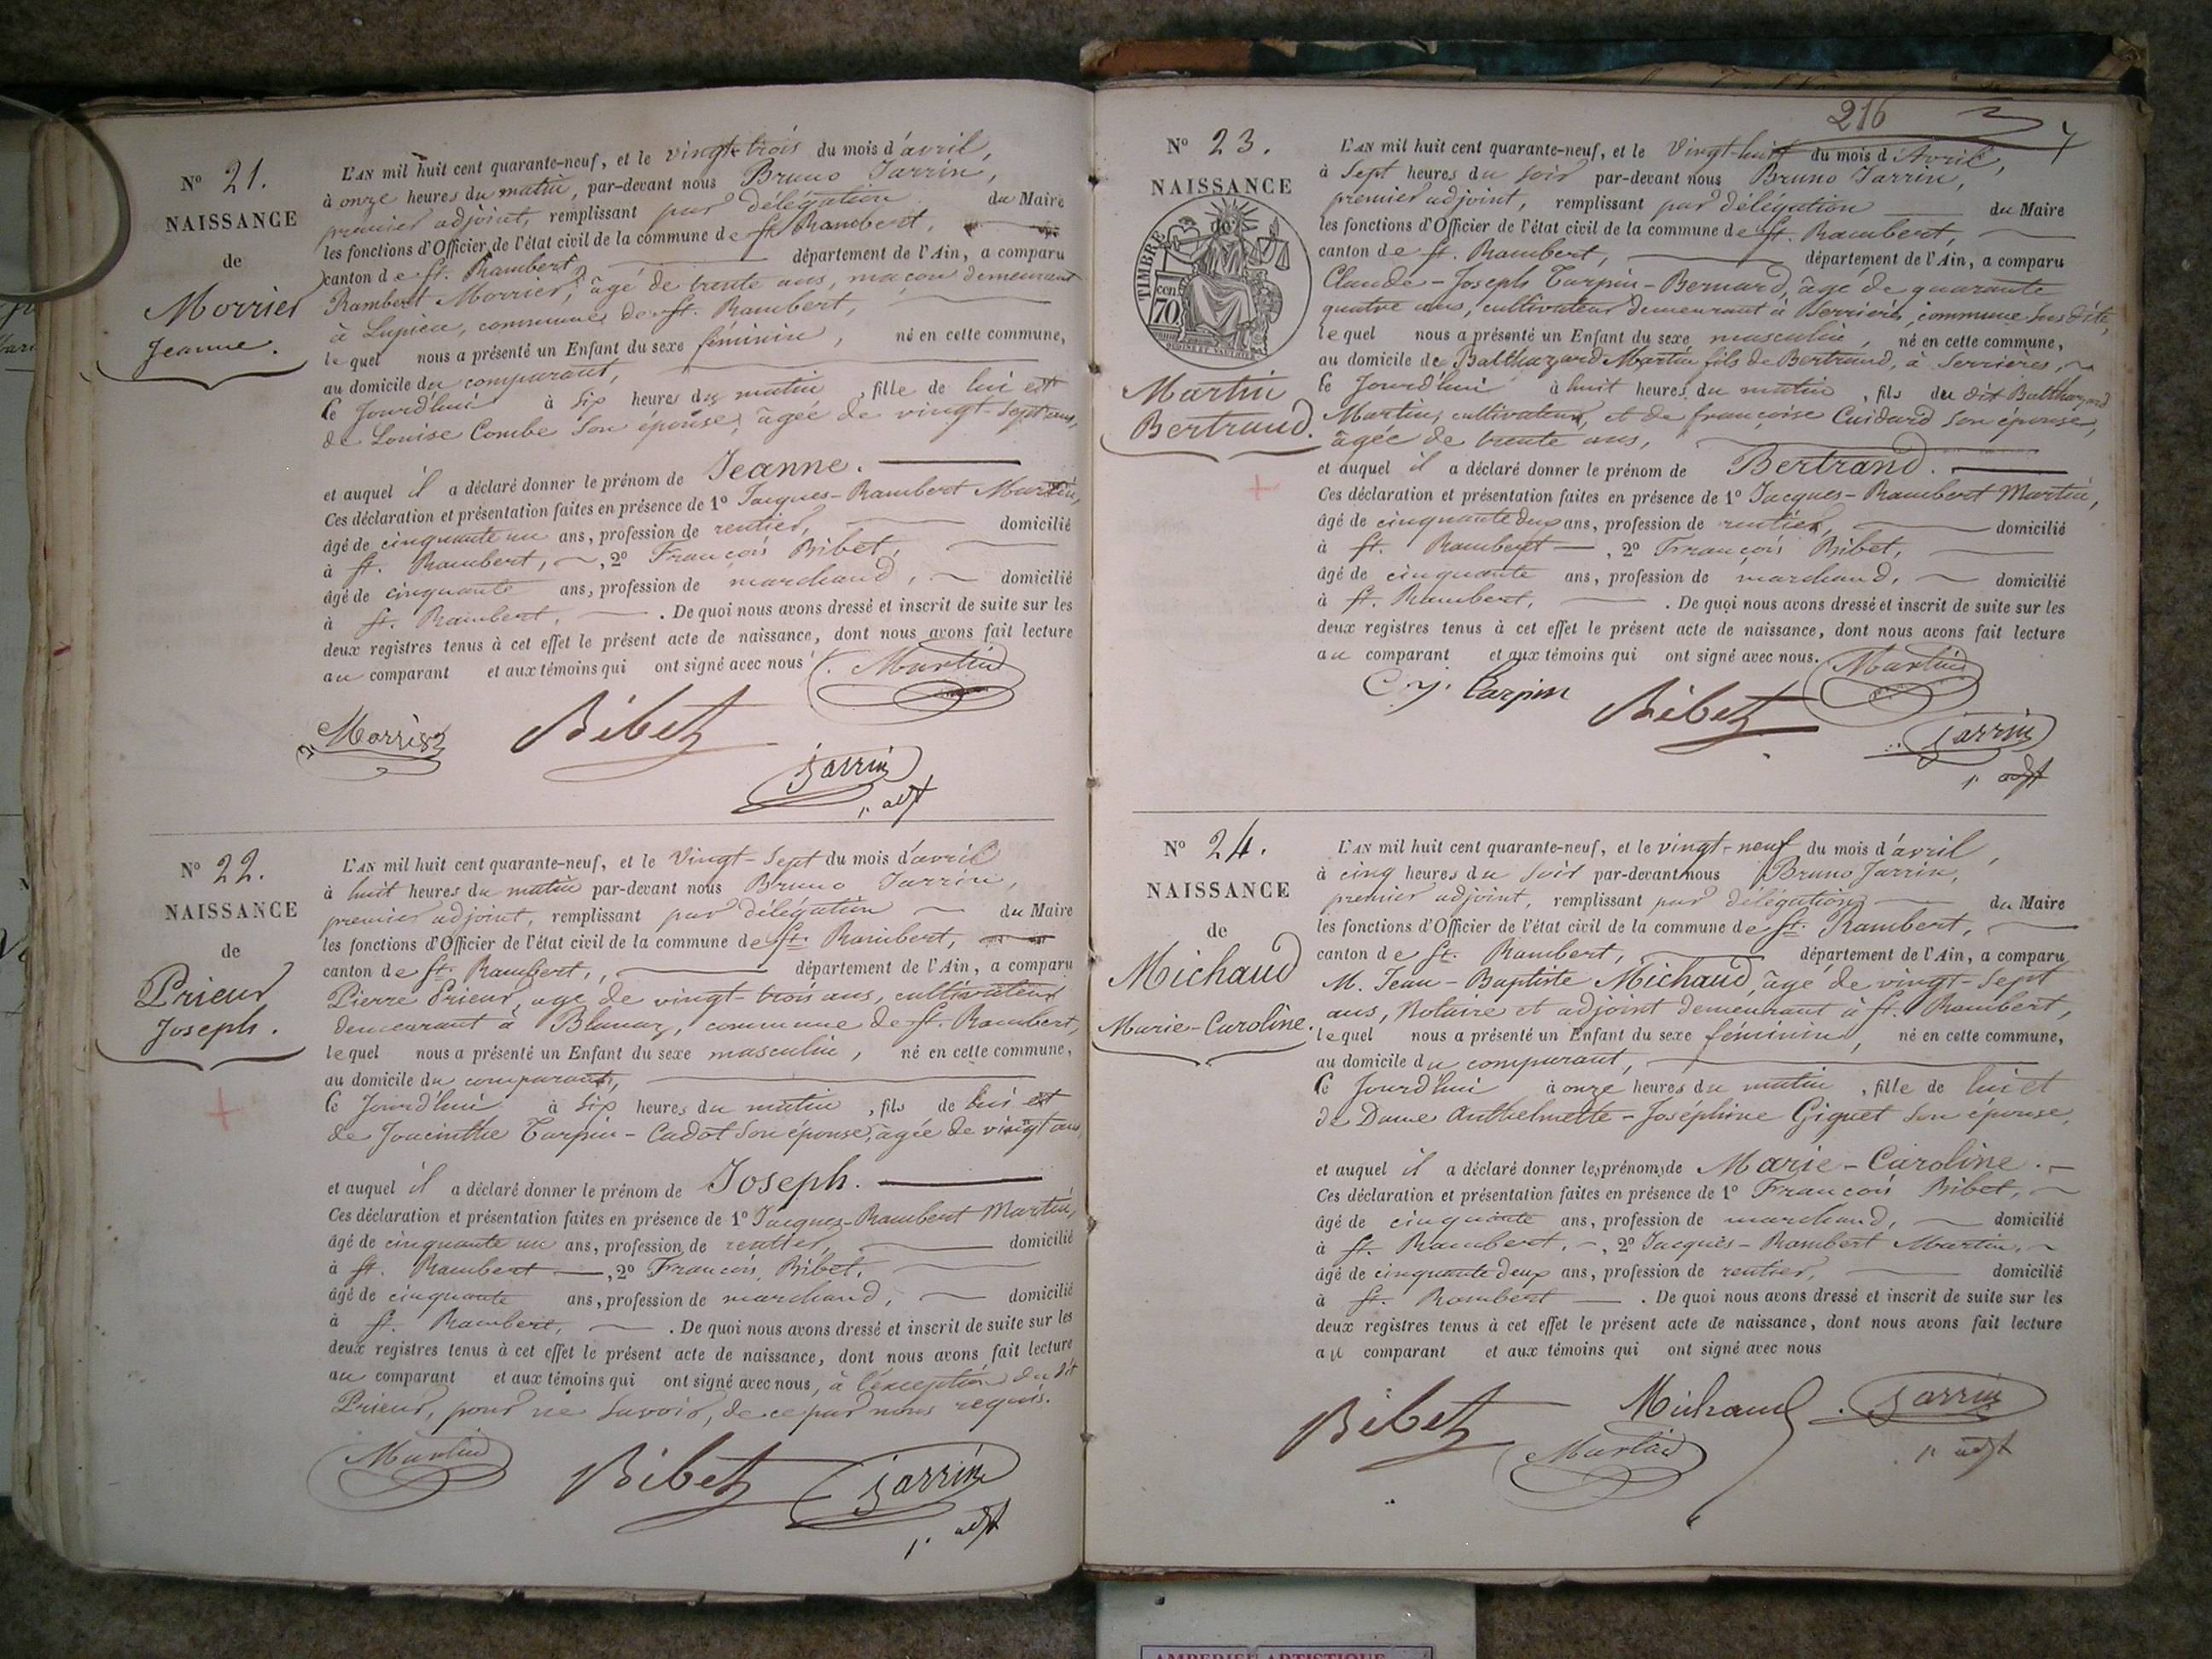 N° 21.
NAISSANCE
de
Morrier
Jeanne.
L'AN mil huit cent quarante-neuf, et le vingt-trois du mois d'avril,
à onze heures du matin, par-devant nous Bruno Jarrin,
premier adjoint, remplissant par délégation du Maire
les fonctions d'Officier de l'état civil de la commune de St. Rambert,
canton de St. Rambert, département de l'Ain, a comparu
Rambert Morrier, âgé de trente ans, maçon demeurant
à Lupieu, commune de St. Rambert,
lequel nous a présenté un Enfant du sexe féminin, né en cette commune,
au domicile du comparant,
ce jourd'hui à six heures du matin, fille de lui et
de Louise Combe son épouse, âgée de vingt-sept ans,
et auquel il a déclaré donner le prénom de Jeanne.
Ces déclaration et présentation faites en présence de 1° Jacques-Rambert Martin,
âgé de cinquante un ans, profession de rentier, domicilié
à St. Rambert, 2° François Bibet,
âgé de cinquante ans, profession de marchand, domicilié
à St. Rambert, . De quoi nous avons dressé et inscrit de suite sur les
deux registres tenus à cet effet le présent acte de naissance, dont nous avons fait lecture
au comparant et aux témoins qui ont signé avec nous. Martin
Morrier Bibet
Jarrin
1r adjt
N° 22.
NAISSANCE
de
Prieur
Joseph.
L'AN mil huit cent quarante-neuf, et le vingt-sept du mois d'avril
à huit heures du matin par-devant nous Bruno Jarrin,
premier adjoint, remplissant par délégation du Maire
les fonctions d'Officier de l'état civil de la commune de St. Rambert,
canton de St. Rambert, département de l'Ain, a comparu
Pierre Prieur, âgé de vingt-trois ans, cultivateur
demeurant à Blanaz, commune de St. Rambert,
lequel nous a présenté un Enfant du sexe masculin, né en cette commune,
au domicile du comparant,
ce jourd'hui à six heures du matin, fils de lui et
de Joacinthe Tarpin-Cadot son épouse, âgée de vingt ans,
et auquel il a déclaré donner le prénom de Joseph.
Ces déclaration et présentation faites en présence de 1° Jacques-Rambert Martin,
âgé de cinquante un ans, profession de rentier, domicilié
à St. Rambert, 2° François Bibet,
âgé de cinquante ans, profession de marchand, domicilié
à St. Rambert, . De quoi nous avons dressé et inscrit de suite sur les
deux registres tenus à cet effet le présent acte de naissance, dont nous avons fait lecture
au comparant et aux témoins qui ont signé avec nous, à l'exception du dit
Prieur, pour ne savoir, de ce par nous requis.
Martin Bibet Jarrin
1r adjt
216
N° 23.
NAISSANCE
de
TIMBRE
cen. 70
Martin
Bertrand.
L'AN mil huit cent quarante-neuf, et le vingt-huit du mois d'Avril,
à sept heures du soir par-devant nous Bruno Jarrin,
premier adjoint, remplissant par délégation du Maire
les fonctions d'Officier de l'état civil de la commune de St. Rambert,
canton de St. Rambert, département de l'Ain, a comparu
Claude-Joseph Tarpin-Bernard, âgé de quarante
quatre ans, cultivateur demeurant à Serrières, commune sus dite,
lequel nous a présenté un Enfant du sexe masculin, né en cette commune,
au domicile de Balthazard Martin fils de Bertrand, à Serrières,
ce jourd'hui à huit heures du matin, fils du dit Balthazard
Martin, cultivateur, et de françoise Cuidard son épouse,
âgée de trente ans,
et auquel il a déclaré donner le prénom de Bertrand.
Ces déclaration et présentation faites en présence de 1° Jacques-Rambert Martin,
âgé de cinquante deux ans, profession de rentier, domicilié
à St. Rambert, 2° François Bibet,
âgé de cinquante ans, profession de marchand, domicilié
à St. Rambert, . De quoi nous avons dressé et inscrit de suite sur les
deux registres tenus à cet effet le présent acte de naissance, dont nous avons fait lecture
au comparant et aux témoins qui ont signé avec nous. Martin
C. j. Tarpin Bibet
Jarrin
1r adjt
N° 24.
NAISSANCE
de
Michaud
Marie-Caroline.
L'AN mil huit cent quarante-neuf, et le vingt-neuf du mois d'avril,
à cinq heures du soir par-devant nous Bruno Jarrin,
premier adjoint, remplissant par délégation du Maire
les fonctions d'Officier de l'état civil de la commune de St. Rambert,
canton de St. Rambert, département de l'Ain, a comparu
M. Jean-Baptiste Michaud, âgé de vingt-sept
ans, Notaire et adjoint demeurant à St. Rambert,
lequel nous a présenté un Enfant du sexe féminin, né en cette commune,
au domicile du comparant,
ce jourd'hui à onze heures du matin, fille de lui et
de Dame Anthelmette-Joséphine Giguet son épouse,
et auquel il a déclaré donner les prénoms de Marie-Caroline.
Ces déclaration et présentation faites en présence de 1° François Bibet,
âgé de cinquante ans, profession de marchand, domicilié
à St. Rambert, 2° Jacques-Rambert Martin,
âgé de cinquante deux ans, profession de rentier, domicilié
à St. Rambert . De quoi nous avons dressé et inscrit de suite sur les
deux registres tenus à cet effet le présent acte de naissance, dont nous avons fait lecture
au comparant et aux témoins qui ont signé avec nous
Bibet Michaud Jarrin
Martin 1r adjt